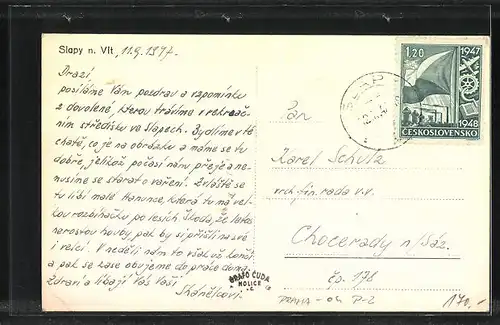 Slapy n. Vlt. 11.9.1947.
Drazí,
posíláme Vám pozdrav a vzpomínku
z dovolené, kterou trávíme v rekreač-
ním středisku ve Slapech. Bydlíme v té
chatě, co je na obrázku a máme se tu
dobře, jelikož počasí nám přeje a ne-
musíme se starat o vaření. Zvláště se
tu líbí malé Hanince, která tu má vel-
kou rozbíhačku po lesích. Škoda, že letos
nerostou houby, pak by si přišli na své
i velcí. V neděli nám to však už končí
a pak se zase obujeme do práce doma.
Zdraví a líbají Vás Vaši
GRAFO ČUDA
HOLICE
1.20
1947
1948
ČESKOSLOVENSKO
Pan
Karel Schulz
vrch. fin. rada v.v.
Chocerady n/Sáz.
čp. 178
PRAHA-
170.-